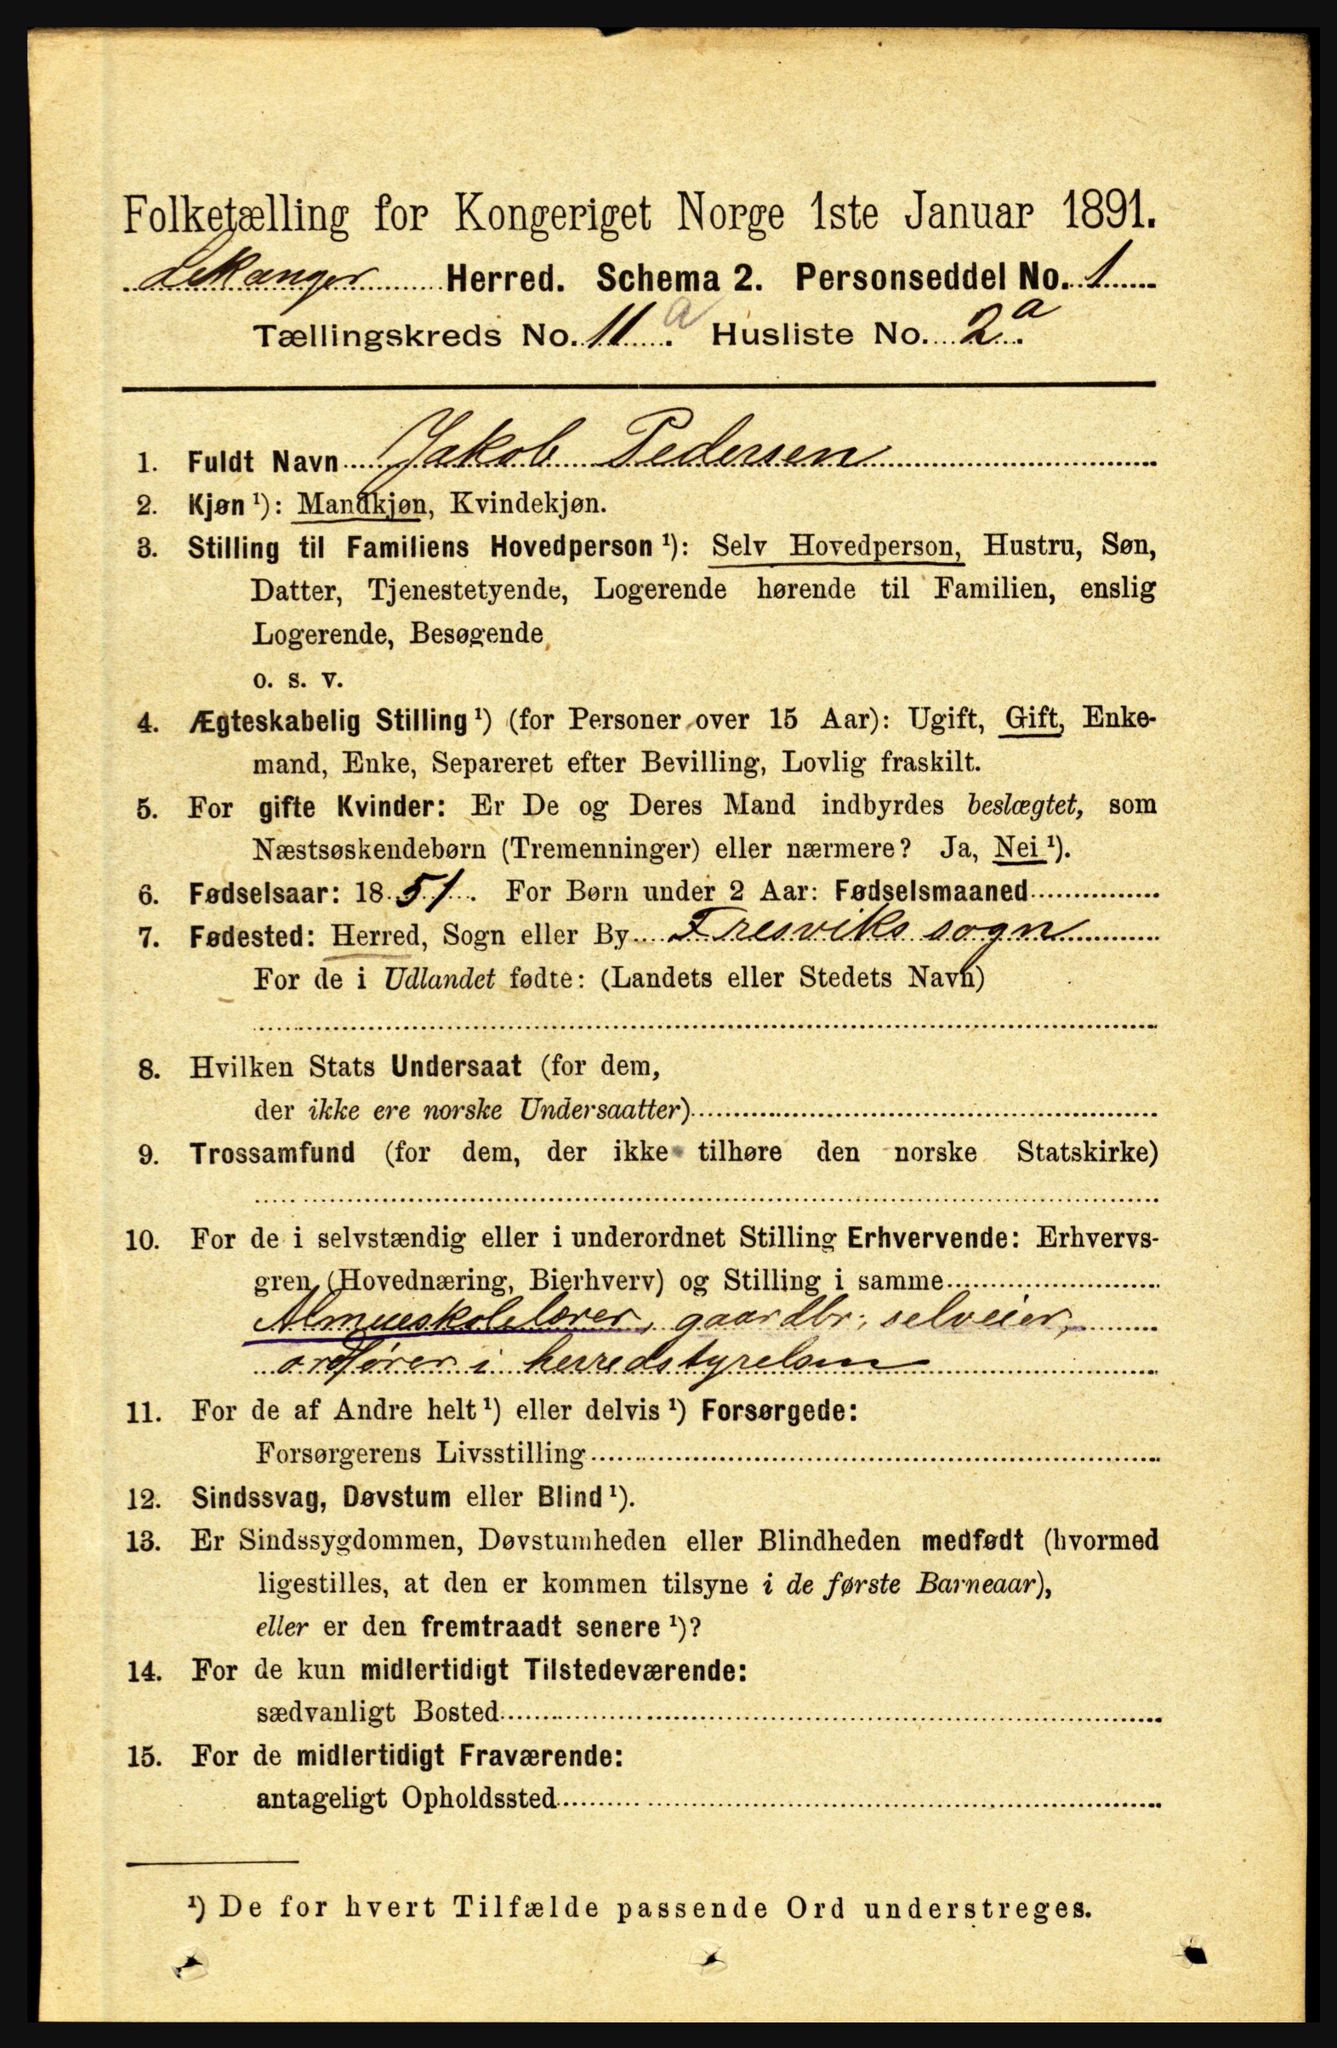 Folketælling for Kongeriget Norge 1ste Januar 1891.
Lekanger Herred. Schema 2. Personseddel No. 1
Tællingskreds No. 11 a. Husliste No. 2 a.
1. Fuldt Navn Jakob Pedersen
2. Kjøn ¹): Mandkjøn, Kvindekjøn.
3. Stilling til Familiens Hovedperson ¹): Selv Hovedperson, Hustru, Søn,
Datter, Tjenestetyende, Logerende hørende til Familien, enslig
Logerende, Besøgende
o. s. v.
4. Ægteskabelig Stilling ¹) (for Personer over 15 Aar): Ugift, Gift, Enke-
mand, Enke, Separeret efter Bevilling, Lovlig fraskilt.
5. For gifte Kvinder: Er De og Deres Mand indbyrdes beslægtet, som
Næstsøskendebørn (Tremenninger) eller nærmere? Ja, Nei ¹).
6. Fødselsaar: 1851. For Børn under 2 Aar: Fødselsmaaned
7. Fødested: Herred, Sogn eller By Fresviks sogn
For de i Udlandet fødte: (Landets eller Stedets Navn)
8. Hvilken Stats Undersaat (for dem,
der ikke ere norske Undersaatter)
9. Trossamfund (for dem, der ikke tilhøre den norske Statskirke)
10. For de i selvstændig eller i underordnet Stilling Erhvervende: Erhvervs-
gren (Hovednæring, Bierhverv) og Stilling i samme
Almueskolelærer, gaardbr., selveier,
ordfører i herredstyrelsen
11. For de af Andre helt ¹) eller delvis ¹) Forsørgede:
Forsørgerens Livsstilling
12. Sindssvag, Døvstum eller Blind ¹).
13. Er Sindssygdommen, Døvstumheden eller Blindheden medfødt (hvormed
ligestilles, at den er kommen tilsyne i de første Barneaar),
eller er den fremtraadt senere ¹)?
14. For de kun midlertidigt Tilstedeværende:
sædvanligt Bosted
15. For de midlertidigt Fraværende:
antageligt Opholdssted
¹) De for hvert Tilfælde passende Ord understreges.